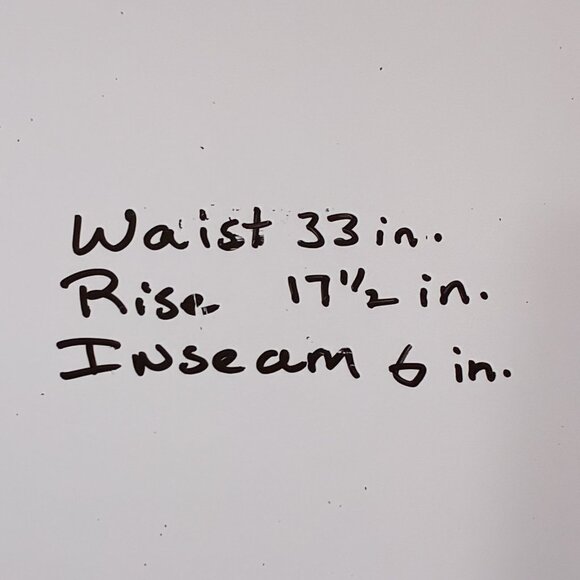 Waist 33 in.
Rise 17 1/2 in.
Inseam 6 in.